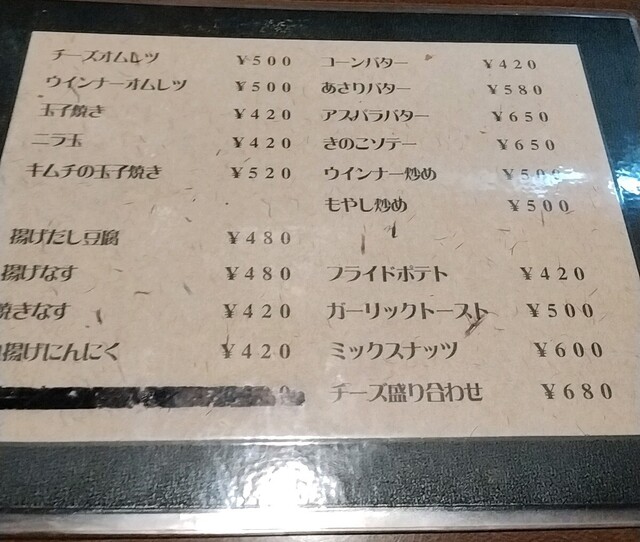 チーズオムレツ ¥500
ウインナーオムレツ ¥500
玉子焼き ¥420
ニラ玉 ¥420
キムチの玉子焼き ¥520
揚げだし豆腐 ¥480
揚げなす ¥480
焼きなす ¥420
揚げにんにく ¥420
コーンバター ¥420
あさりバター ¥580
アスパラバター ¥650
きのこソテー ¥650
ウインナー炒め ¥500
もやし炒め ¥500
フライドポテト ¥420
ガーリックトースト ¥500
ミックスナッツ ¥600
チーズ盛り合わせ ¥680